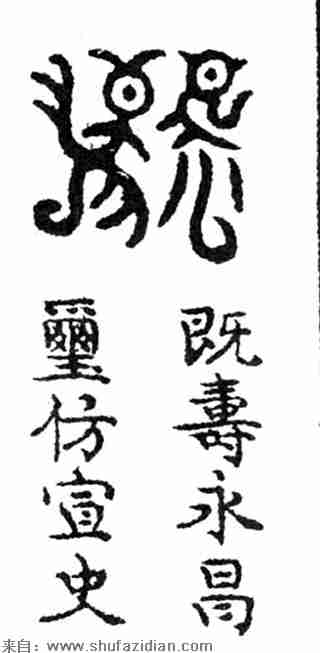 既壽永昌
璽仿宣史
来自：www.shufazidian.com